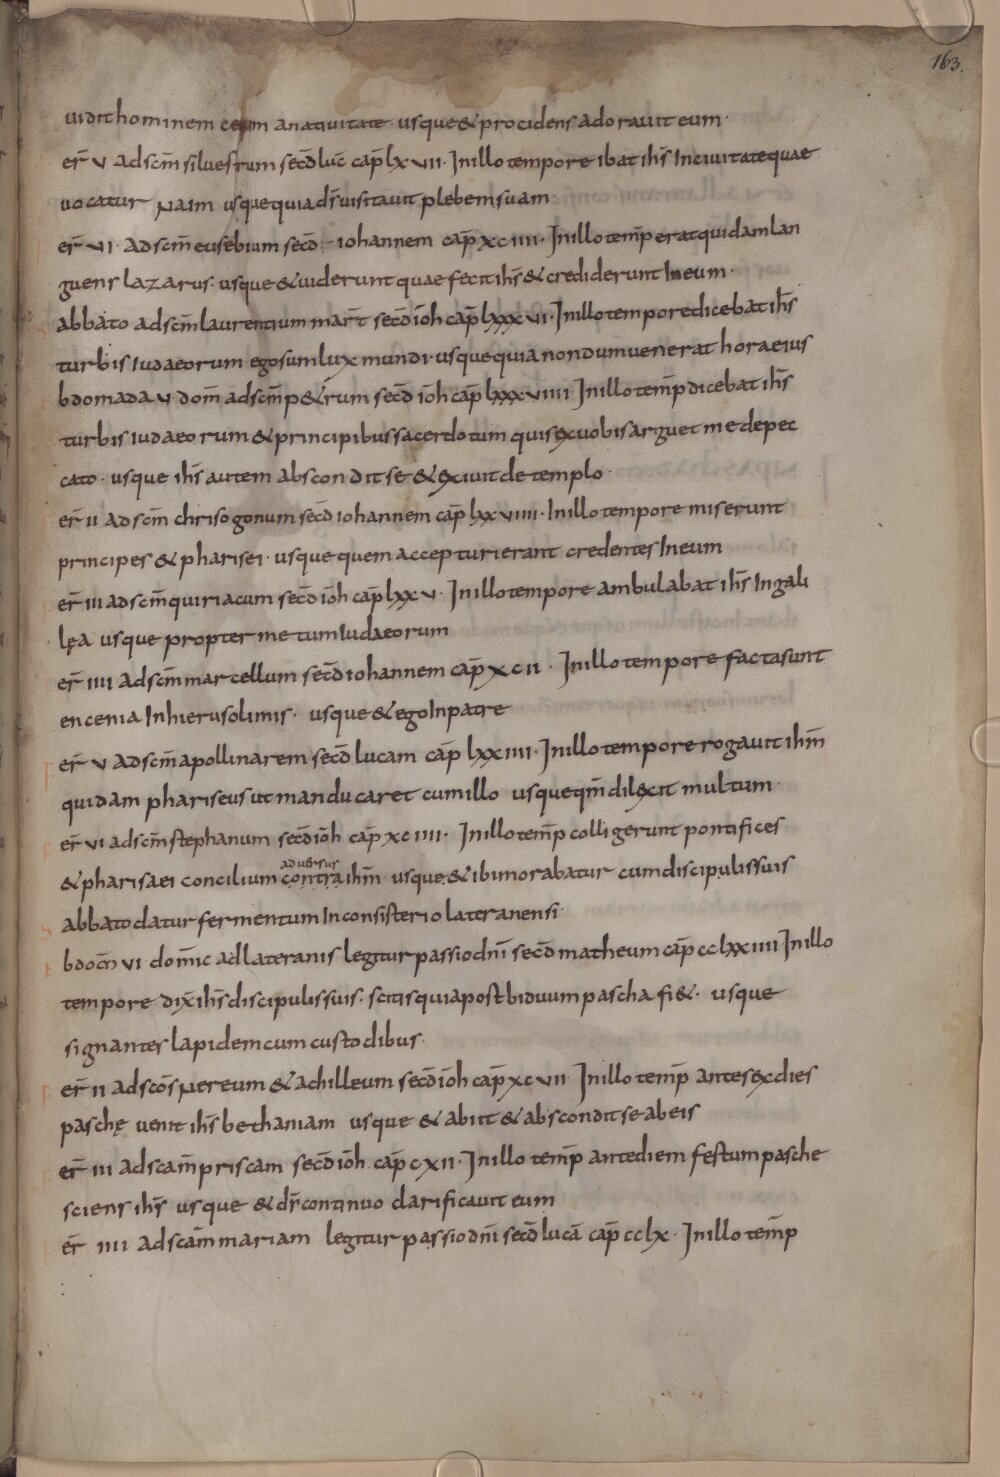 163.
uidit hominem cecum a natiuitate usque & procidens adorauit eum·
er̄ v ad scm̄ siluestrum secd̄ luc̄ cap̄ lxvii· In illo tempore ibat ih̄s In ciuitate quae
uocatur Naim usque quia d̄s uisitauit plebem suam
er̄ vi· ad scm̄ eusebium secd̄ iohannem cap̄ xciiii· In illo temp̄ erat quidam lan
guens lazarus· usque & uiderunt quae fecit ih̄s & crediderunt In eum·
abbato ad scm̄ laurentium mar̄t secd̄ ioh̄ cap̄ lxxxvi· In illo tempore dicebat ih̄s
turbis iudaeorum ego sum lux mundi· usque quia nondum uenerat hora eius
bdomada v dom̄ ad scm̄ p&rum secd̄ ioh̄ cap̄ lxxxviiii In illo temp̄ dicebat ih̄s
turbis iudaeorum & principibus sacerdotum quis ex uobis arguet me de pec
cato· usque ih̄s autem abscondit se & exiuit de templo·
er̄ ii ad scm̄ chrisogonum secd̄ iohannem cap̄ lxxviiii· In illo tempore miserunt
principes & pharisei· usque quem accepturi erant credentes In eum
er̄ iii ad scm̄ quiriacum secd̄ ioh̄ cap̄ lxxv· In illo tempore ambulabat ih̄s In gali
lęa usque propter metum Iudaeorum
er̄ iiii ad scm̄ marcellum secd̄ iohannem cap̄ xcii· In illo tempore facta sunt
encenia In hierusolimis· usque & ego In patre
er̄ v ad scm̄ apollinarem secd̄ lucam cap̄ lxxiiii· In illo tempore rogauit ih̄m
quidam phariseus ut manducaret cum illo usque qm̄ dilexit multum·
er̄ vi ad scm̄ stephanum secd̄ ioh̄ cap̄ xciiii· In illo temp̄ colligerunt pontifices
aduersus
& pharisaei concilium contra ih̄m· usque & ibi morabatur cum discipulis suis
abbato datur fermentum In consisterio lateranensi·
bdom̄ vi domīc ad lateranis legitur passio dn̄i secd̄ matheum cap̄ cclxxiiii In illo
tempore dix̄ ih̄s discipulis suis· scitis quia post biduum pascha fi&· usque
signantes lapidem cum custodibus·
er̄ ii ad scōs Nereum & achilleum secd̄ ioh̄ cap̄ xcvii In illo temp̄ ante sex dies
paschę uenit ih̄s bethaniam usque & abiit & abscondit se ab eis
er̄ iii ad scam̄ priscam secd̄ ioh̄ cap̄ cxii· In illo temp̄ ante diem festum pasche
sciens ih̄s usque & d̄s continuo clarificauit eum
er̄ iiii ad scam̄ mariam legitur passio dn̄i secd̄ lucā cap̄ cclx· In illo temp̄